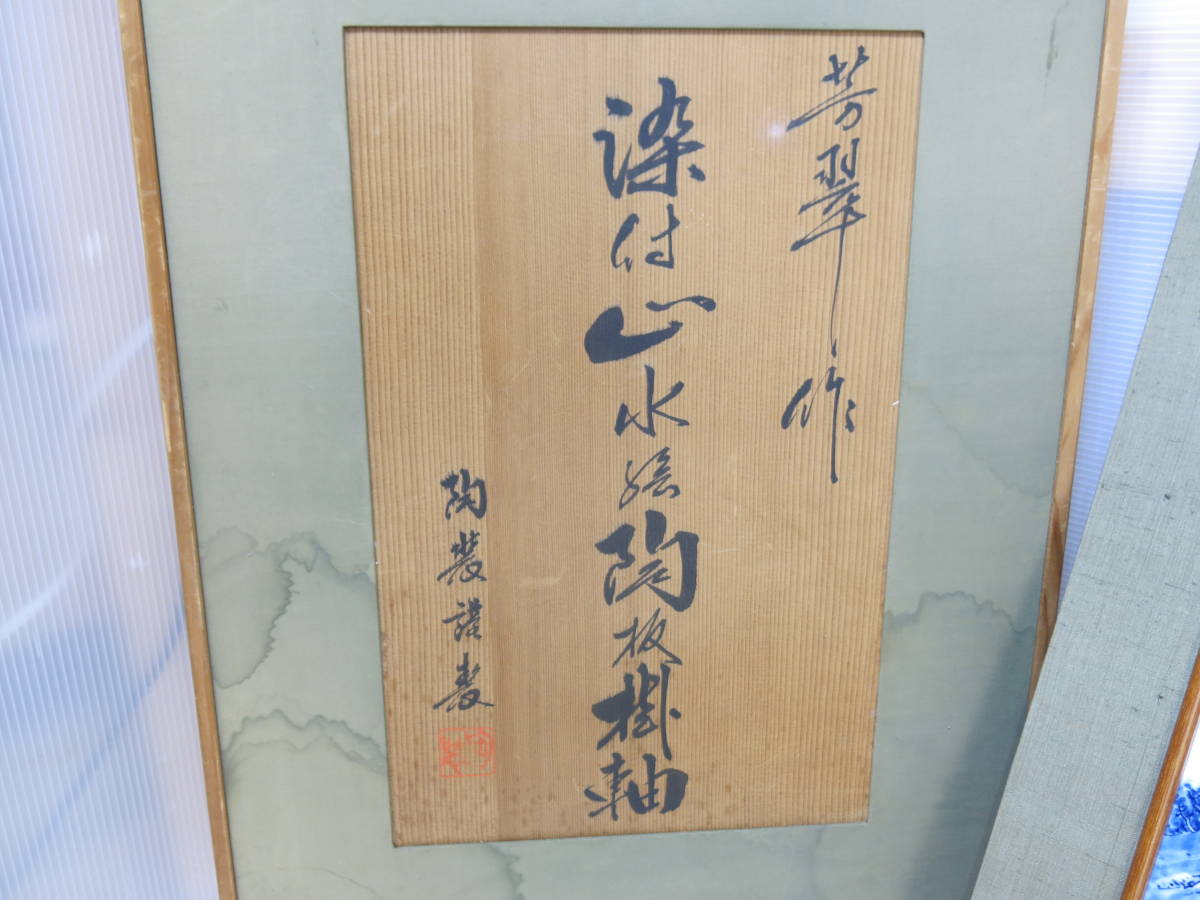 芳翠作
染付山水絵陶板掛軸
陶葊謹製